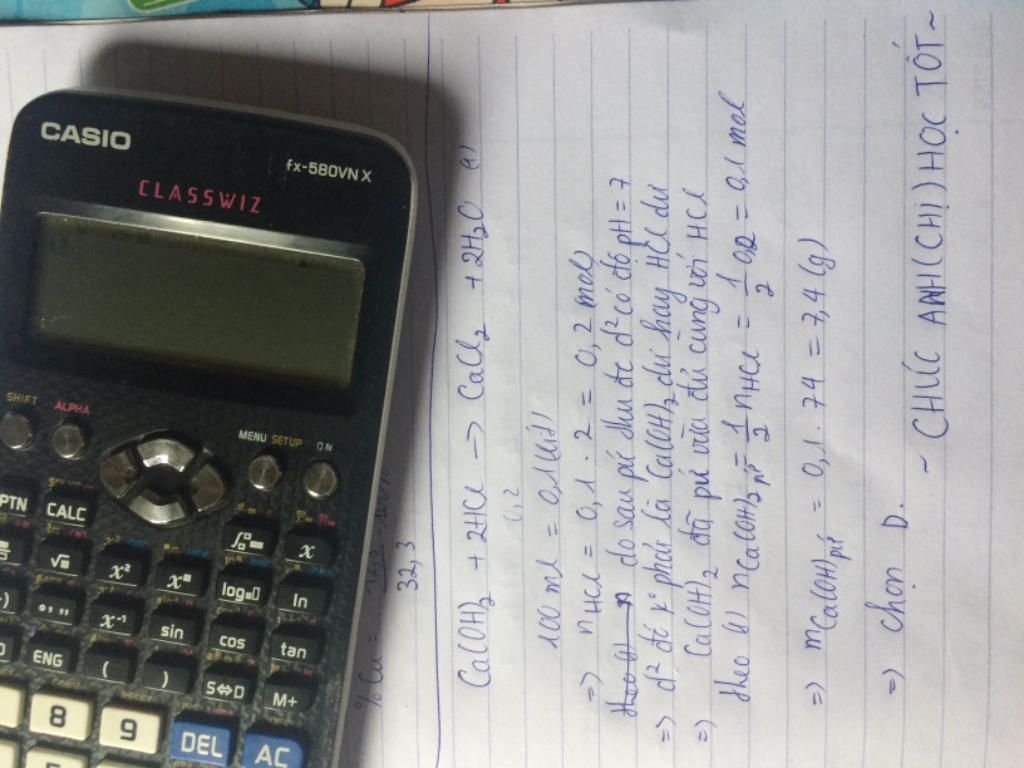 CASIO
fx-580VN X
CLASSWIZ
SHIFT
ALPHA
MENU SETUP
ON
OPTN
CALC
x
√
x²
log
ln
x⁻¹
sin
cos
tan
ENG
(
)
S⇔D
M+
8
9
DEL
AC
% Cu =
32,3
Ca(OH)₂ + 2HCl → CaCl₂ + 2H₂O
0,2
100 ml = 0,1 (lít)
=> nHCl = 0,1 . 2 = 0,2 mol
do sau pứ thu đc d² có độ pH = 7
=> d² đó k° phải là Ca(OH)₂ dư hay HCl dư
=> Ca(OH)₂ đã pứ vừa đủ cùng với HCl
theo (1) nCa(OH)₂ pứ = 1/2 nHCl = 1/2 0,2 = 0,1 mol
=> mCa(OH) pứ = 0,1 . 74 = 7,4 (g)
=> Chọn D.
~ CHÚC ANH(CHỊ) HỌC TỐT ~